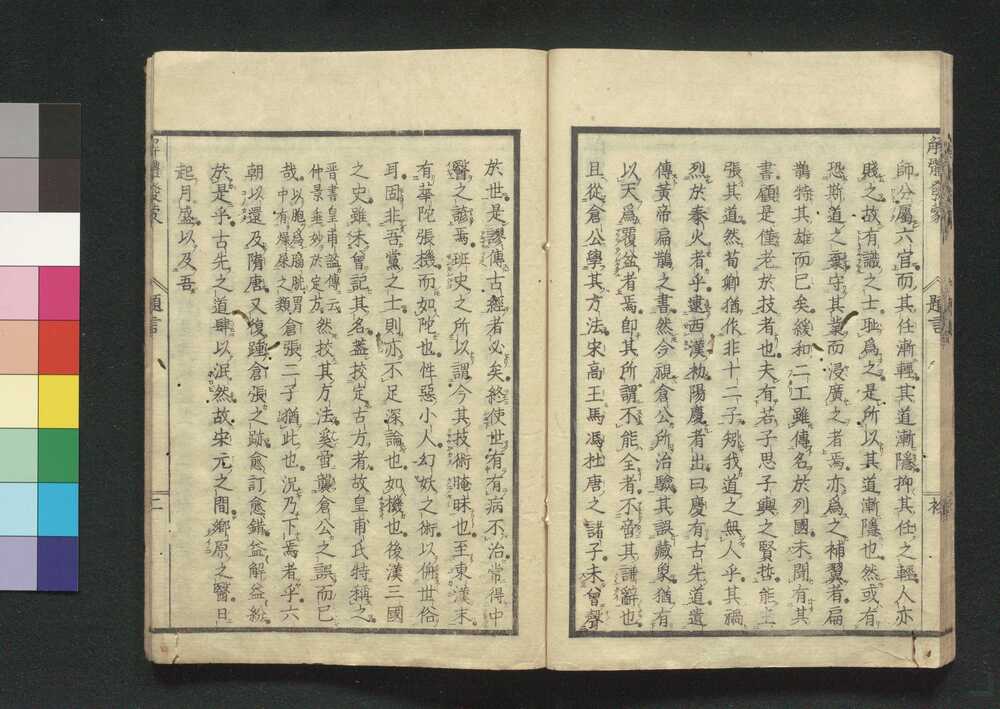 師分屬六官而其任漸輕其道漸隱抑其任之輕人亦
賤之故有識之士耻爲之是所以其道漸隱也然或有
恐斯道之棄守其業而浸廣之者焉亦爲之補翼者扁
鵲特其雄而已矣緩和二工雖傳名於列國未聞有其
書顧是僅老於技者也夫有若子思子輿之賢哲能主
張其道然荀卿猶作非十二子矧我道之無人乎其禍
烈於秦火者乎逮西漢初陽慶者出曰慶有古先道遺
傳黃帝扁鵲之書然今視倉公所治驗其誤藏象猶有
以天爲覆盆者焉卽其所謂不能全者不啻其謙辭也
且從倉公學其方法宋高王馬馮杜唐之諸子未曾聲
題言
於世是謬傳古經者必矣終使世有有病不治常得中
醫之諺焉班史之所以謂今其技術晻昧也至東漢末
有華陀張機而如陀也性惡小人幻妖之術以俯世俗
耳固非吾黨之士則亦不足深論也如機也後漢三國
之史雖未曾記其名蓋挍定古方者故皇甫氏特稱之
晉書皇甫謐傳云
仲景垂妙於定方然挍其方法奚啻襲倉公之誤而已
哉以胞爲膀胱胃
中有燥屎之類倉張二子猶此也況乃下焉者乎六
朝以還及隋唐又復踵倉張之跡愈訂愈錯益解益紛
於是乎古先之道肆以泯然故宋元之間鄉原之醫日
起月盛以及吾
題言
二